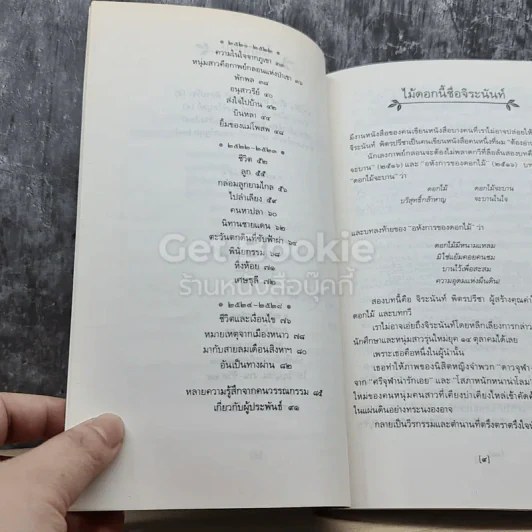 ๑ ๒๕๒๑-๒๕๒๒ ๑
ความในใจจากภูเขา ๓๓
หนุ่มสาวคือกาพย์กลอนแห่งป่าเขา ๓๖
พักพล ๓๘
อนุสาวรีย์ ๔๐
ส่งใจไปบ้าน ๔๒
บินหลา ๔๔
ยิ้มของแม่โพสพ ๔๘
๑ ๒๕๒๒-๒๕๒๓ ๑
ชีวิต ๕๒
ลูก ๕๕
กล่อมลูกยามไกล ๕๖
ไปลำเลียง ๕๙
คนหาปลา ๖๐
นิทานชายแดน ๖๒
ตะวันตกดินที่ขับฟ้าผ่า ๖๔
พินัยกรรม ๖๘
หิ่งห้อย ๗๑
เศษธุลี ๗๒
๑ ๒๕๒๔-๒๕๒๘ ๑
ชีวิตและเงื่อนไข ๗๖
หมายเหตุจากเมืองหนาว ๗๘
มากับสายลมเดือนสิงหาฯ ๘๐
อันเป็นทางผ่าน ๘๒
หลายความรู้สึกจากคนวรรณกรรม ๘๕
เกี่ยวกับผู้ประพันธ์ ๙๑
Get Bookie
ร้านหนังสือบุ๊คกี้
ไม้ดอกนี้ชื่อจิระนันท์
มีงานหนังสือของคนเขียนหนังสือบางคนที่เราไม่อาจปล่อยให้
พิตรปรีชาเป็นคนเขียนหนังสือคนหนึ่งที่ผม
นักเลงกาพย์กลอนจะต้องไม่พลาดกวีที่ลือลั่นสองบทคือ
จะบาน" (๒๕๑๖) และ "อหังการของดอกไม้" (๒๕๑๖)
"ดอกไม้จะบาน" ว่า
ดอกไม้ ดอกไม้จะบาน
บริสุทธิ์กล้าหาญ จะบานในใจ
และบทลงท้ายของ "อหังการของดอกไม้" ว่า
ดอกไม้มีหนามแหลม
มิใช่แย้มคอยคนชม
บานไว้เพื่อสะสม
ความอุดมแห่งผืนดิน!
สองบทนี้คือ จิระนันท์ พิตรปรีชา ผู้สร้างคุณค่า
ดอกไม้ และบทกวี
เราไม่อาจเอ่ยถึงจิระนันท์โดยหลีกเลี่ยงการกล่าว
นักศึกษาและหนุ่มสาวรุ่นใหม่ยุค ๑๔ ตุลาคมได้เลย
เพราะเธอคือหนึ่งในผู้นำนั้น
เธอทำให้ภาพของนิสิตหญิงจำพวก "ดาวจุฬา
จาก "ศรีจุฬาน่ารักเอย" และ "โสภาพนักหนาน่าโลม
ใหม่ของคนหนุ่มคนสาวที่เดี่ยวเปล่าเดี่ยวใหล่เข้าคัดค้าน
ในแผ่นดินอย่างทระนงองอาจ
กลายเป็นวีรกรรมและตำนานที่ตรึงตราตรึงใจ
[๙]